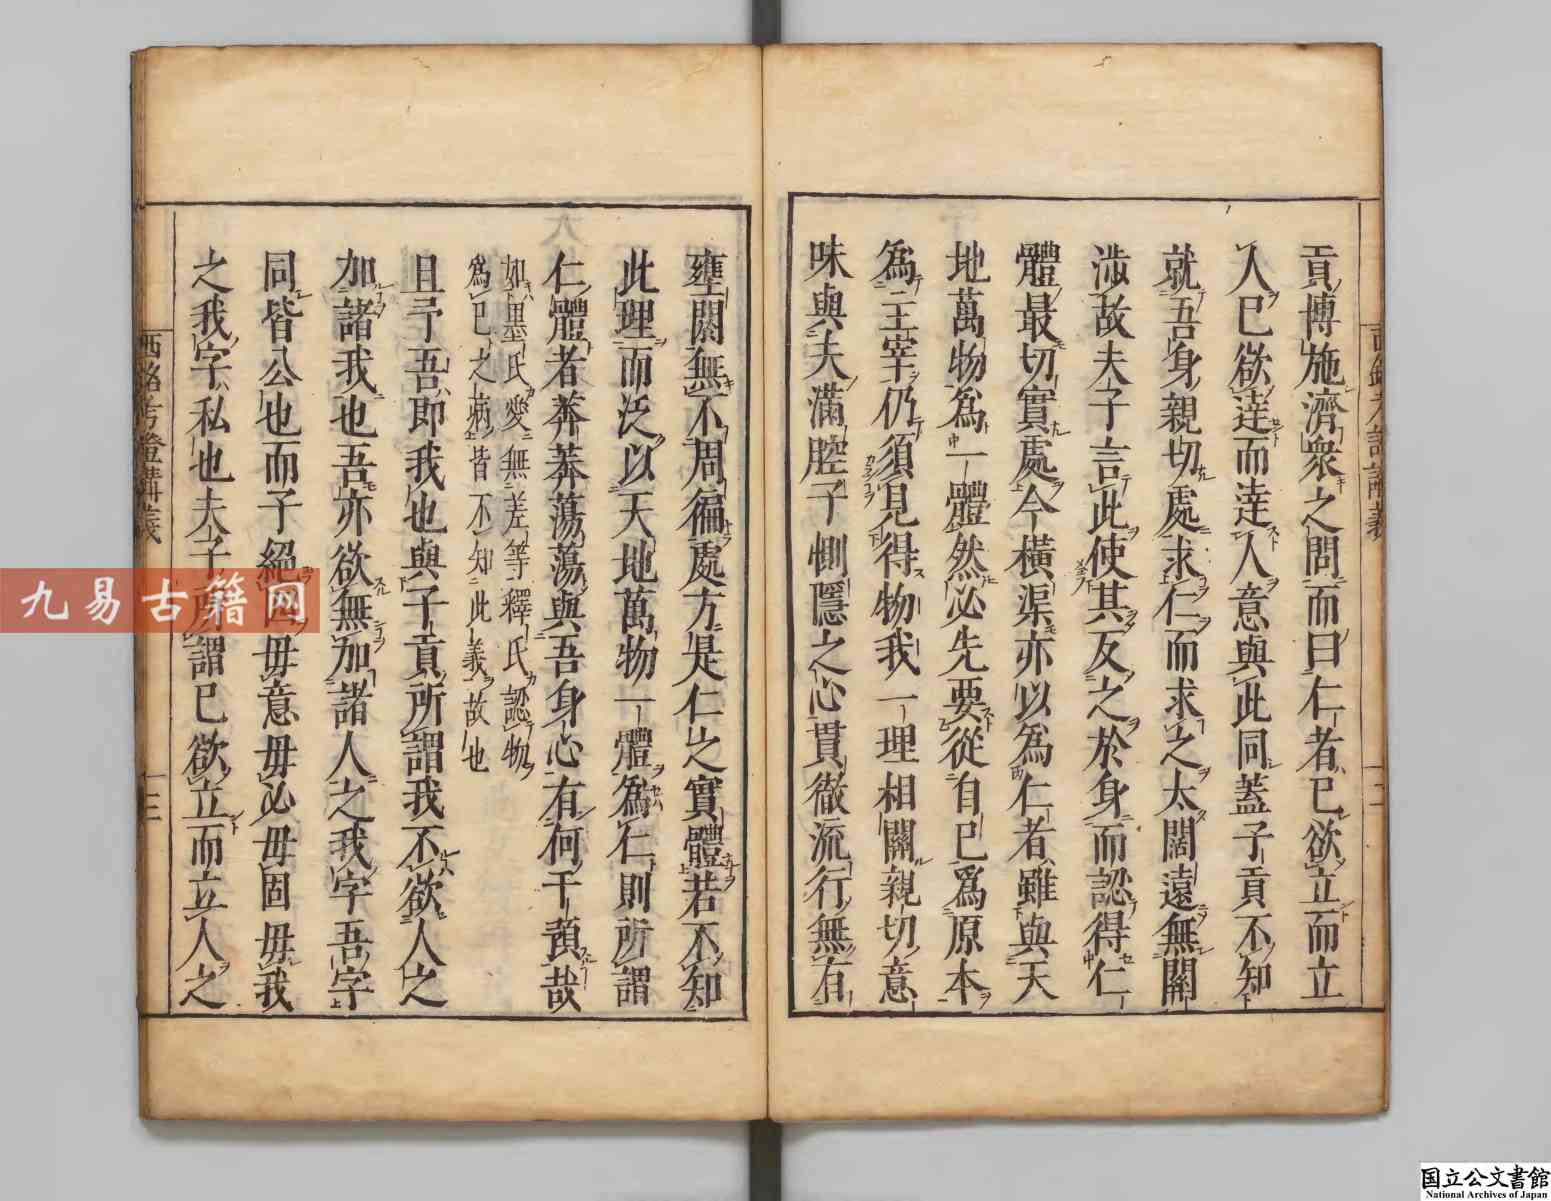 貢博施濟衆之問而曰仁者己欲立而立
人己欲達而達人意與此同蓋子貢不知
就吾身親切處求仁而求之太闊遠無關
渉故夫子言此使其反之於身而認得仁
體最切實處今橫渠亦以爲仁者雖與天
地萬物爲一體然必先要從自己爲原本
爲主宰仍須見得物我一理相關親切意
味與夫滿腔子惻隱之心貫徹流行無有
壅閼無不周徧處方是仁之實體若不知
此理而泛以天地萬物一體爲仁則所謂
仁體者莽莽蕩蕩與吾身心有何干預哉
如墨氏愛無差等釋氏認物
爲己之病皆不知此義故也
且予吾即我也與子貢所謂我不欲人之
加諸我也吾亦欲無加諸人之我字吾字
同皆公也而子絶四毋意毋必毋固毋我
之我字私也夫子所謂己欲立而立人之
西銘考證講義
十二
西銘考證講義
十三
九易古籍网
国立公文書館
National Archives of Japan